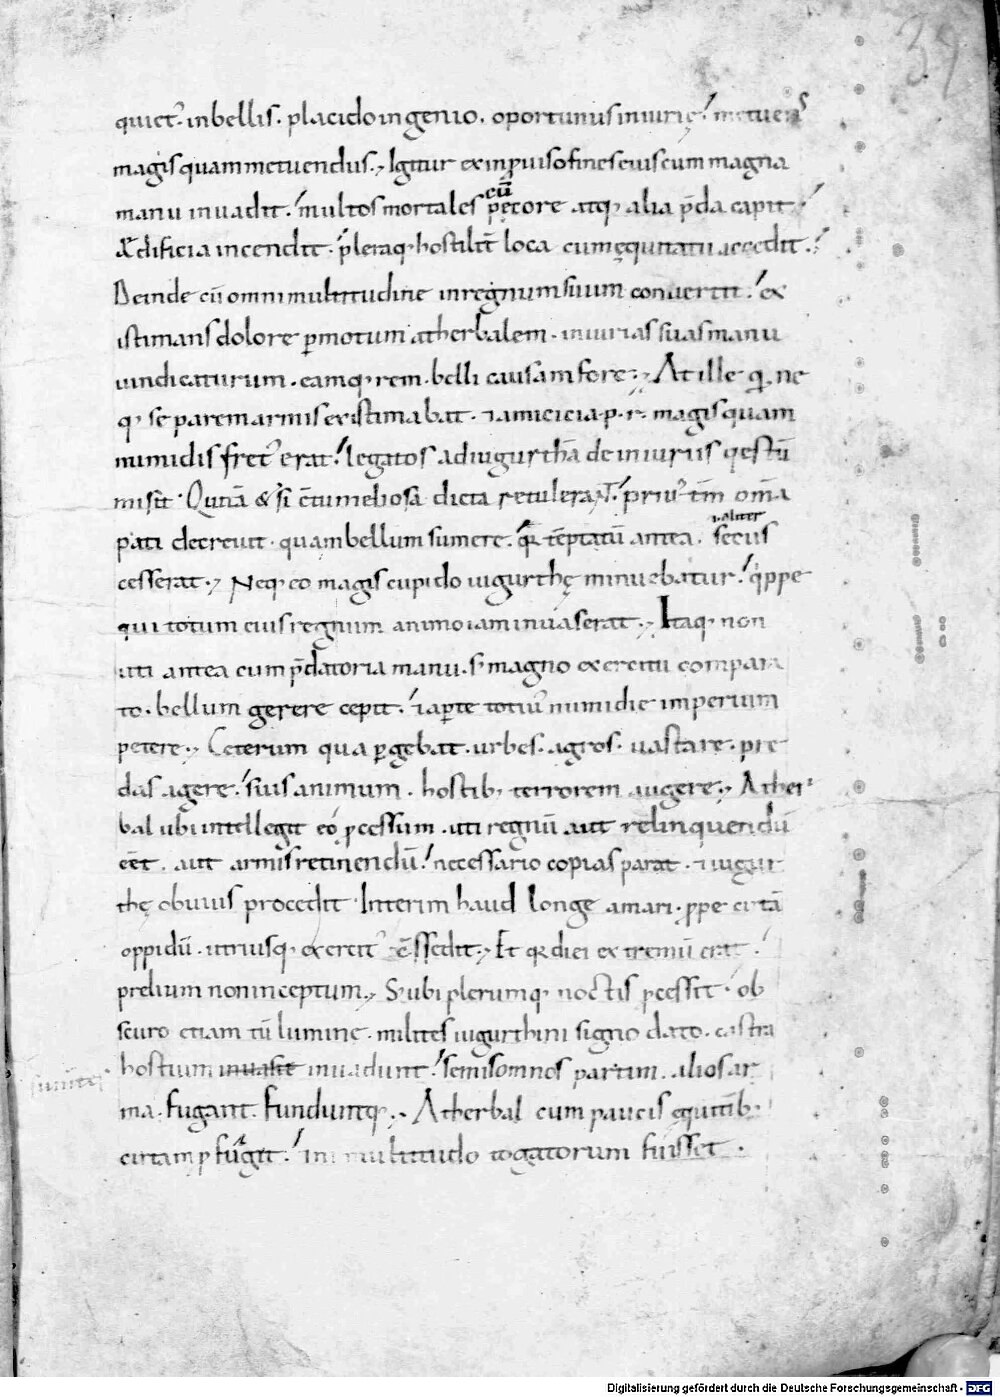 39
quiet᷒. inbellis. placido ingenio. oportunus iniurię! metuens
magis quam metuendus., Igitur eximpuiso fines eius cum magna
manu inuadit. multos mortales cū pecore atq; alia p̄da capit.
Ædificia incendit. pleraq; hostilit̄ loca cum ęquitatu accedit.
Deinde cū omni multitudine in regnum suum conuertit! ex
istimans dolore ꝑmotum atherbalem. iniurias suas manu
uindicaturum. eamq; rem. belli causam fore., At ille q̄. ne
q; se parem armis existimabat. & amicicia .p. r. magis quam
numidis fret᷒ erat! legatos ad iugurthā de iniuriis q̨estū
misit. Qui tā & si c̄tumeliosa dicta retulerant. prius tm̄ omīa
pati decreuit. quam bellum sumere. q̄a tēptatū antea. secus ł aliter
cesserat., Neq; eo magis cupido iugurthę minuebatur! q̍ppe
qui totum eius regnum animo iam inuaserat., Itaq; non
uti antea cum p̄datoria manu. s; magno exercitu compara
to. bellum gerere cepit. & aperte toti᷒ numidie imperium
petere., Ceterum qua ꝑgebat. urbes. agros. uastare. pre
das agere. suis animum. hostib; terrorem augere., Ather
bal ubi intellegit eo ꝓcessum. uti regnū aut relinquendū
eēt. aut armis retinendū! necessario copias parat. & iugur
thę obuius procedit. Interim haud longe amari. ꝓpe cirtā
oppidū. utriusq; exercit᷒ cōssedit., Et q̄a diei extremū erat.
prelium non inceptum., S; ubi plerumq; noctis ꝓcessit. ob
scuro etiam tū lumine. milites iugurthini signo dato. castra
hostium inuasit inuadunt! semisomnos partim. alios ar
ma. fugant. funduntq;., Atherbal cum paucis equitib;
cirtam ꝓfugit! multitudo togatorum fuisset.
Digitalisierung gefördert durch die Deutsche Forschungsgemeinschaft - DFG